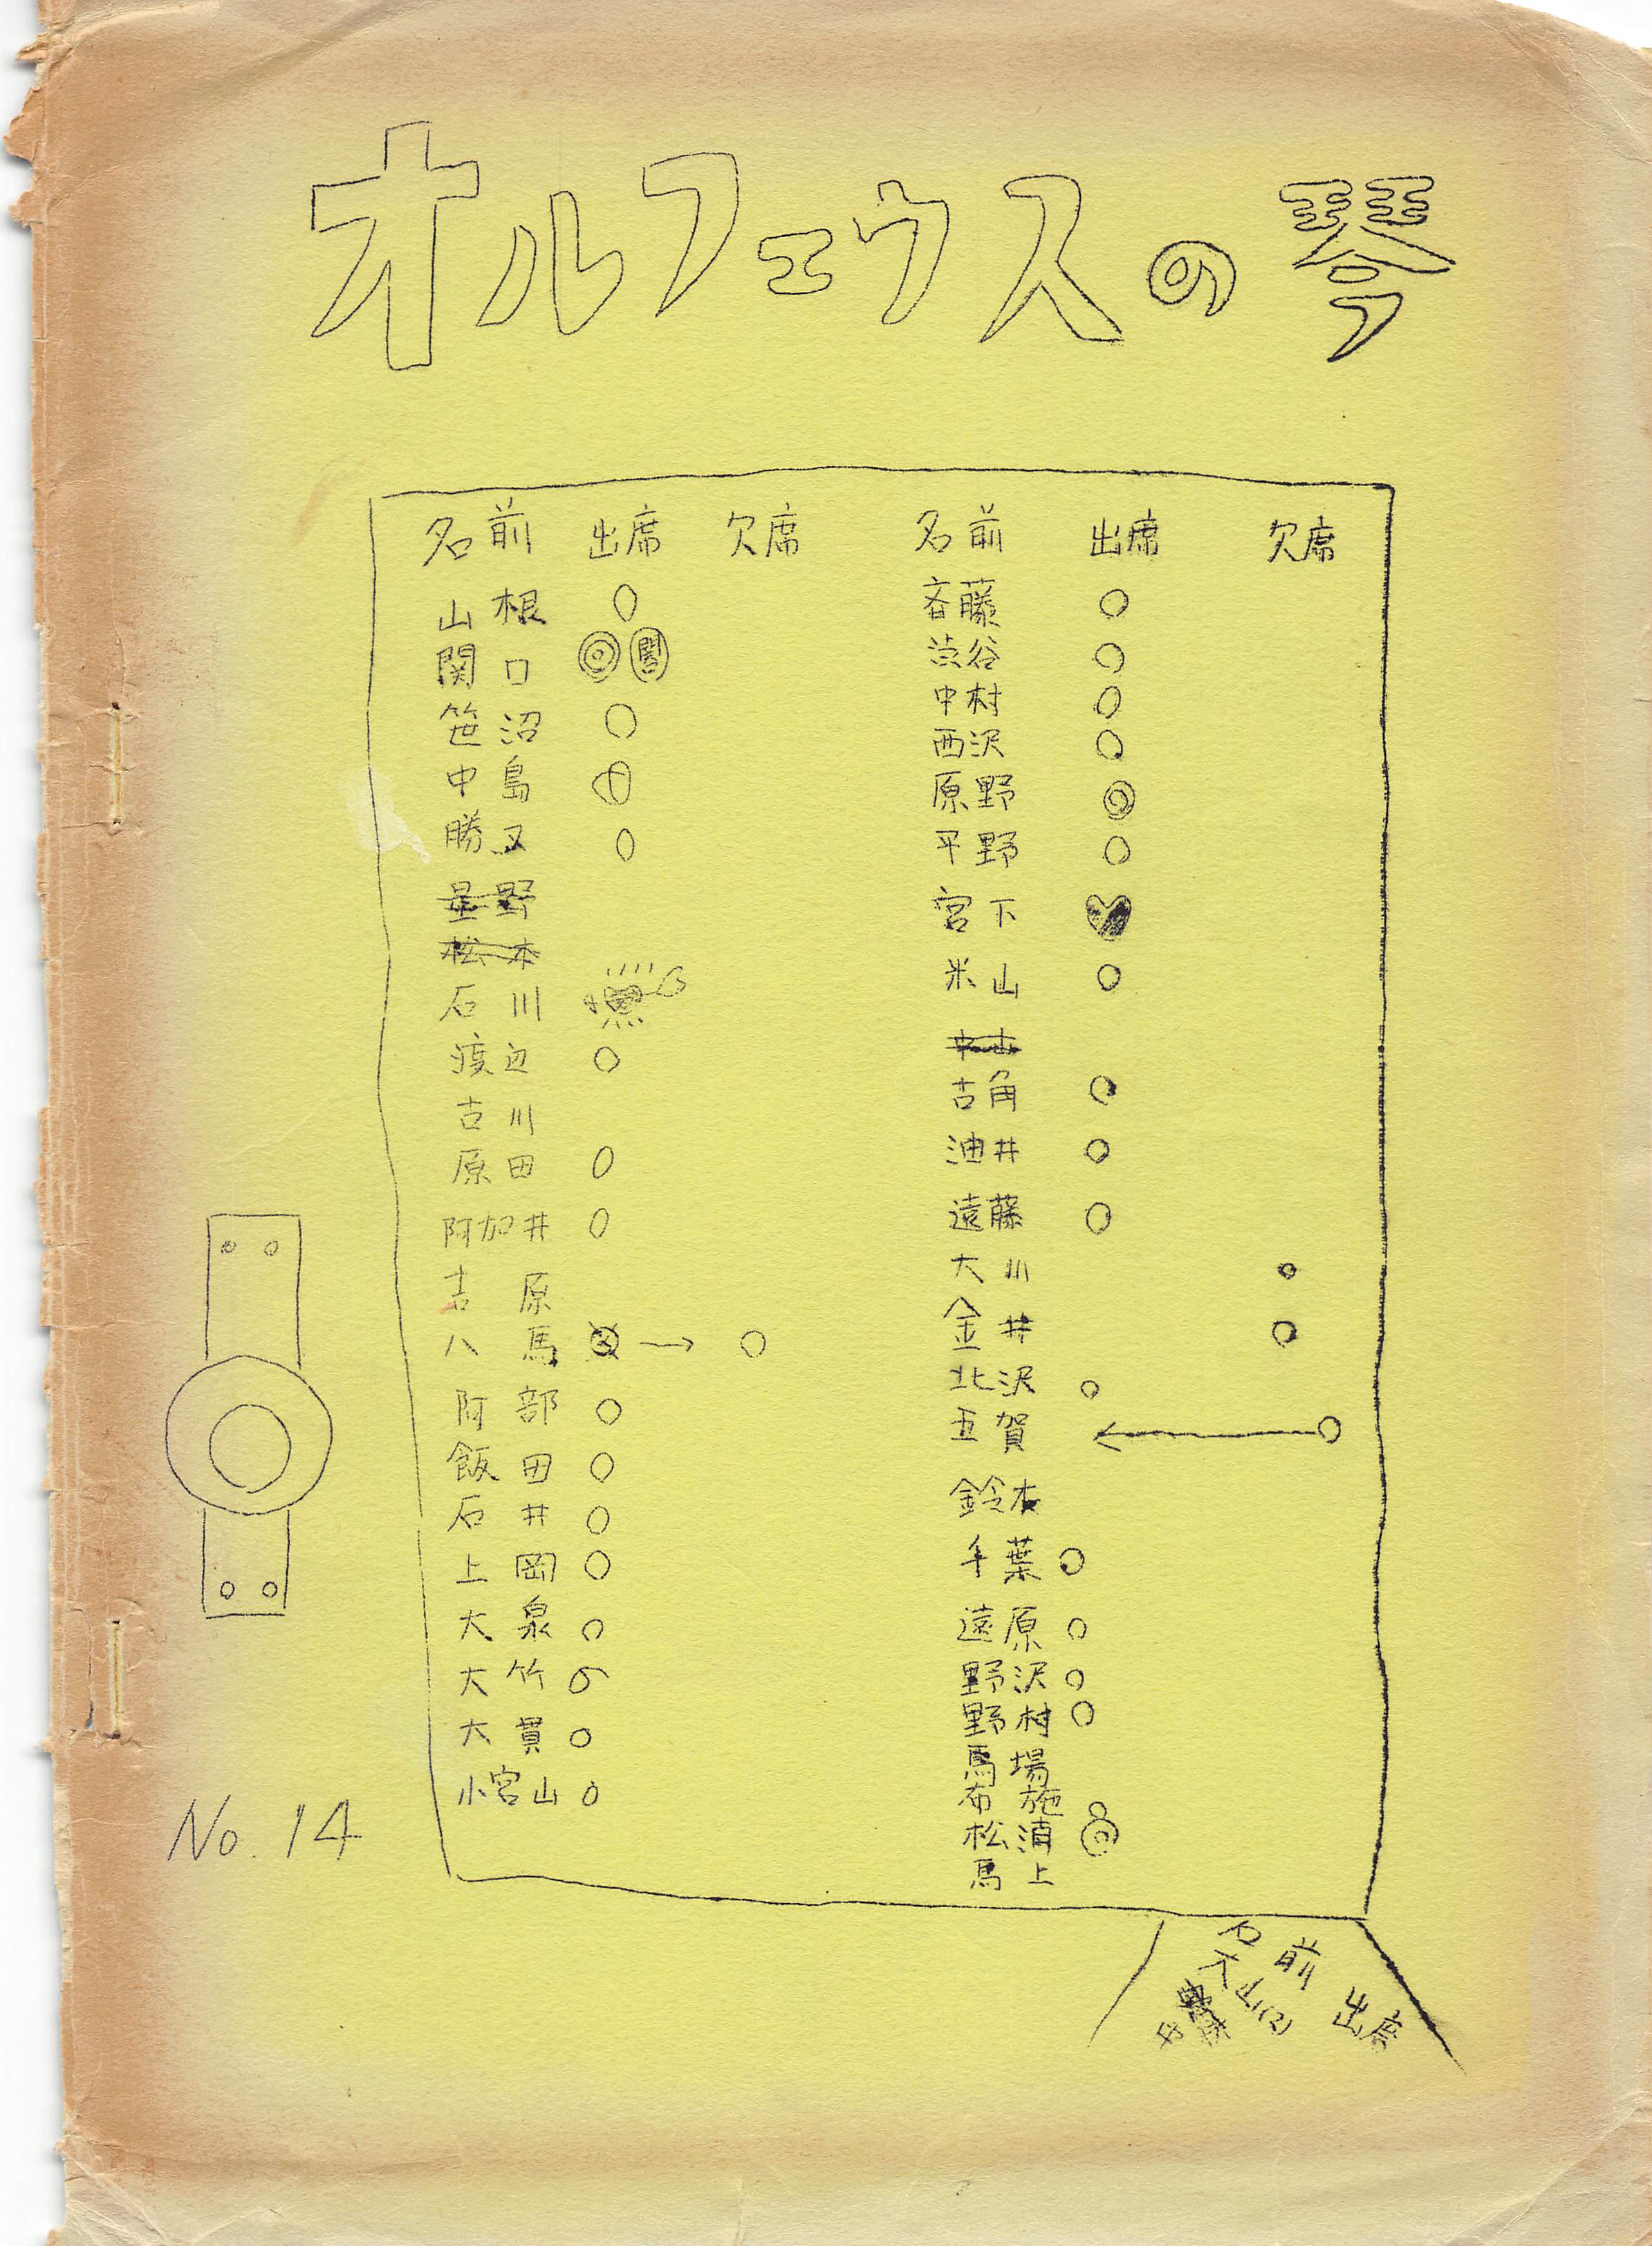 オルフェウスの琴
名前 出席 欠席
山根 ○
関口 ◎
笹沼 ○
中島 ○
勝又 ○
星野
松本
石川
渡辺 ○
古川
原田 ○
阿加井 ○
吉原
八馬 → ○
阿部 ○
飯田 ○
石井 ○
上岡 ○
大泉 ○
大竹 ○
大貫 ○
小宮山 ○
名前 出席 欠席
斉藤 ○
渋谷 ○
中村 ○
西沢 ○
原野 ◎
平野 ○
宮下
米山 ○
中山
古角 ○
油井 ○
遠藤 ○
大川 ○
金井 ○
北沢 ○
五賀 ← ○
鈴木
千葉 ○
遠原 ○
野沢 ○
野村 ○
馬場
布施 ○
松浦 ◎
馬上
名前 出席
大山(2)
No. 14